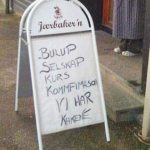 Jærbaker'n
BULUP
SELSKAP
KURS
KOMMFIMASON
VI HAR
KAKENE